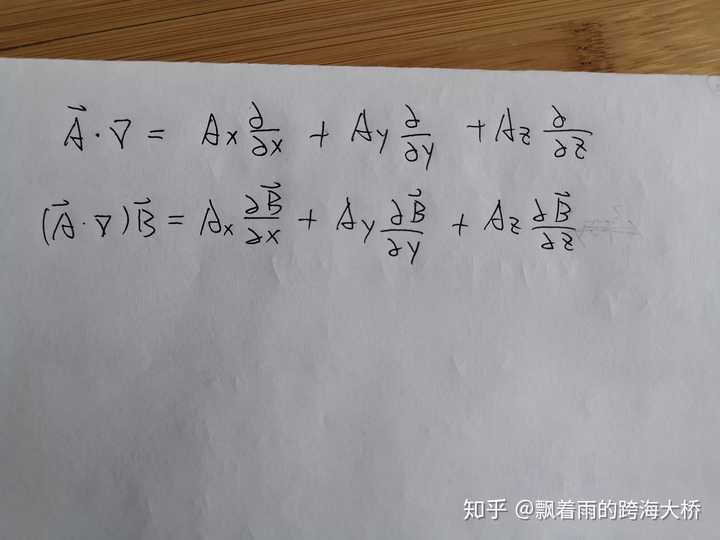 A⃗·∇ = Ax ∂/∂x + Ay ∂/∂y + Az ∂/∂z
(A⃗·∇)B⃗ = Ax ∂B⃗/∂x + Ay ∂B⃗/∂y + Az ∂B⃗/∂z
知乎 @飘着雨的跨海大桥